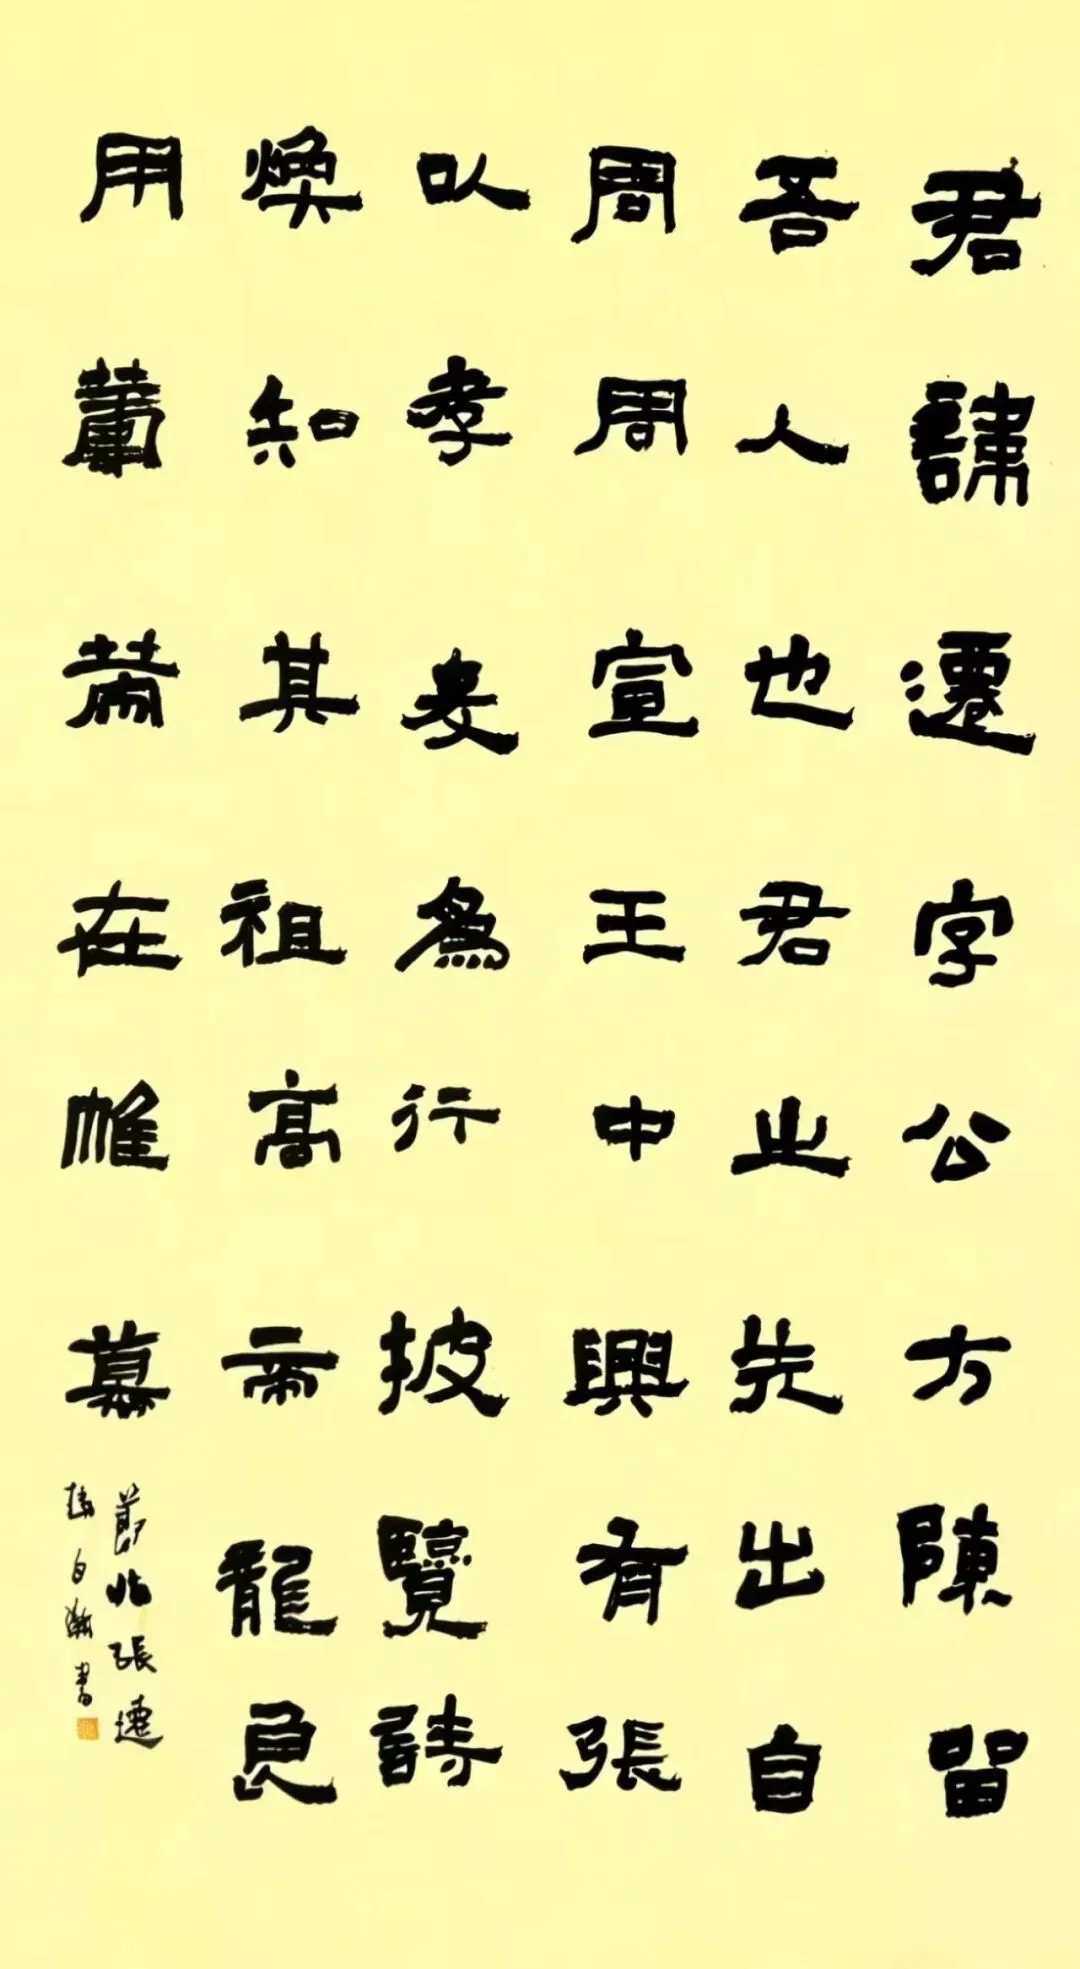 君諱遷字公方陳留
吾人也君之先出自
周周宣王中興有張
以孝友為行披覽詩
煥知其祖高帝龍良
用籌策在帷幕
節臨張遷
書